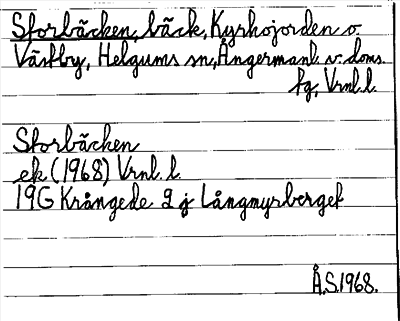 Storbäcken, bäck, Kyrkojorden o.
Västby, Helgums sn, Ångermanl. v. doms.
fg, Vrnl. l.
Storbäcken
ek (1968) Vrnl. l.
19G Krångede 9 j Långmyrberget
Å.S. 1968.